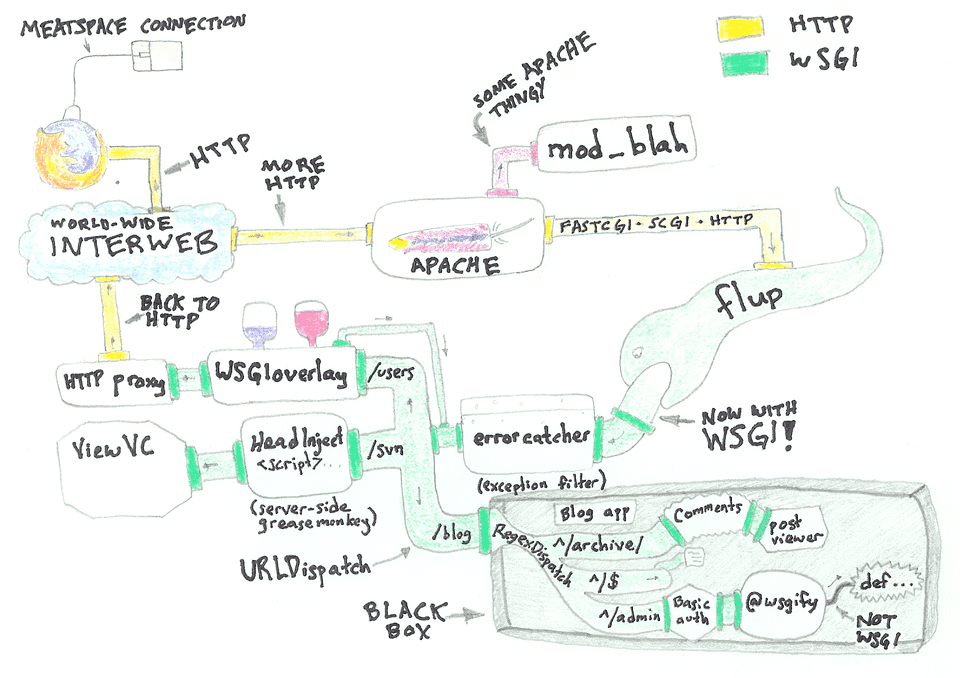 MEATSPACE CONNECTION
HTTP
WSGI
SOME APACHE
THINGY
mod_blah
HTTP
MORE
HTTP
WORLD-WIDE
INTERWEB
APACHE
FASTCGI · SCGI · HTTP
flup
BACK TO
HTTP
HTTP proxy
WSGIoverlay
/users
errorcatcher
(exception filter)
NOW WITH
WSGI!
ViewVC
HeadInject
<script>...
/svn
(server-side
greasemonkey)
/blog
URLDispatch
BLACK
BOX
Blog app
RegexDispatch
^/archive/
Comments
post
viewer
^/$
^/admin
Basic
auth
@wsgify
def...
NOT
WSGI